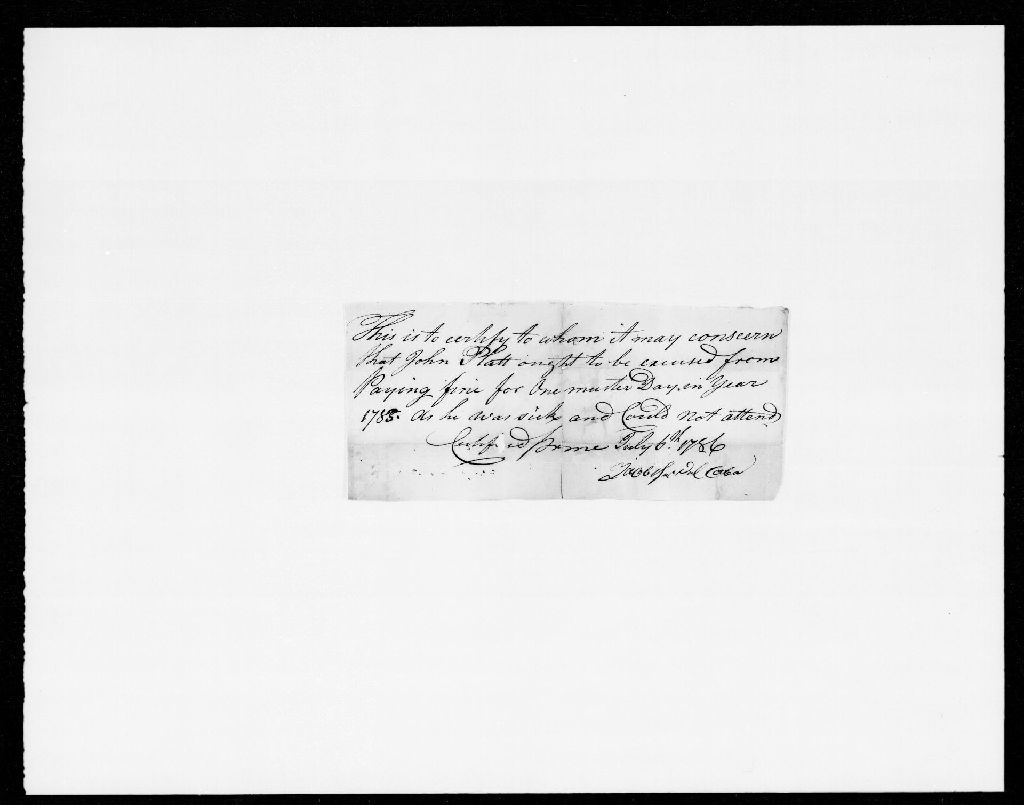 This is to certify to whom it may conscern
that John Platt ought to be excused from
Paying fine for One muster Day, in Year
1785. As he was sick and Could Not attend
Certified pr me July 6th 1786